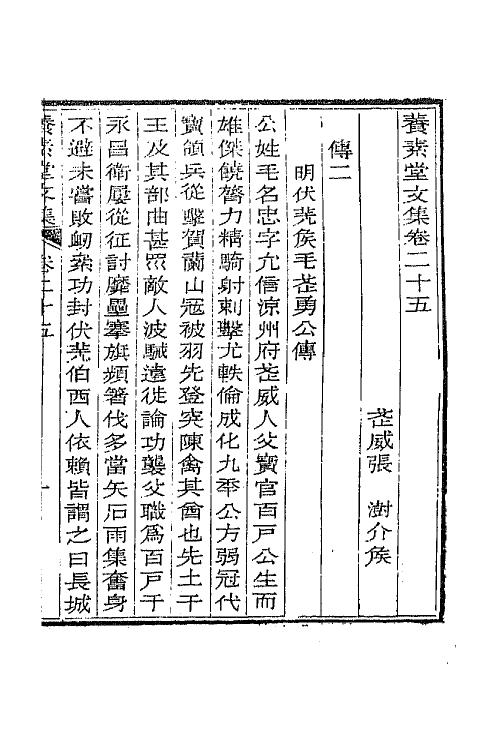 養素堂文集卷二十五
武威張　澍介侯
傳二
明伏羌侯毛武勇公傳
公姓毛名忠字允信涼州府武威人父寶官百戶公生而
雄傑饒膂力精騎射刺擊尤軼倫成化九年公方弱冠代
寶領兵從擊賀蘭山冠被羽先登突陳禽其酋也先土干
王及其部曲甚眾敵人波駴遠徙論功襲父職爲百戶于
永昌衛屢從征討麾壘搴旗頻箸伐多當矢石雨集奮身
不避未嘗敗衂絫功封伏羌伯西人依賴皆謌之曰長城
養素堂文集　卷二十五　一